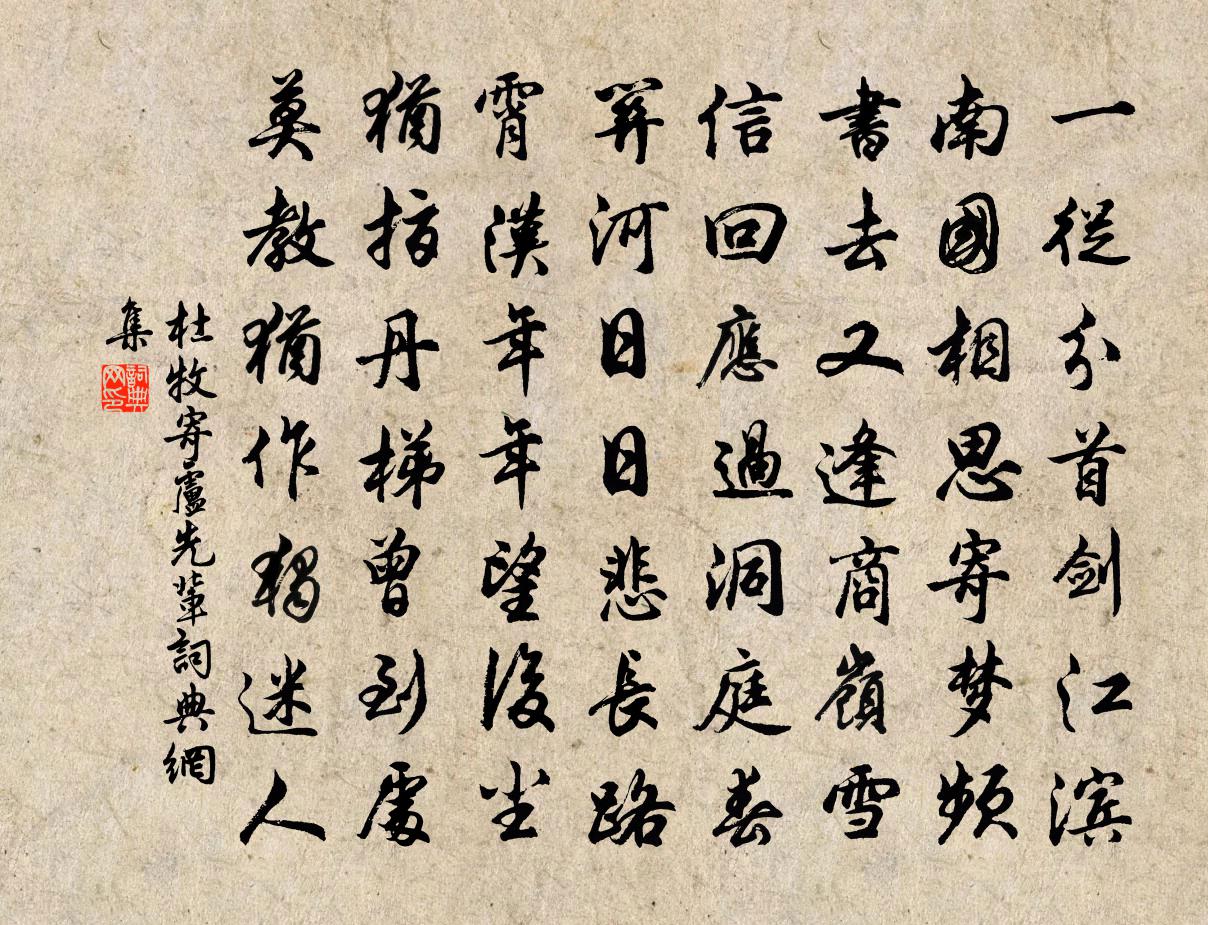 一從分首剑江滨
南國相思寄梦頻
書去又逢商嶺雪
信回應過洞庭春
關河日日悲長路
霄漢年年望後尘
猶指丹梯曾到處
莫教猶作獨迷人
杜牧寄盧先輩詞典網
集
詞典网印